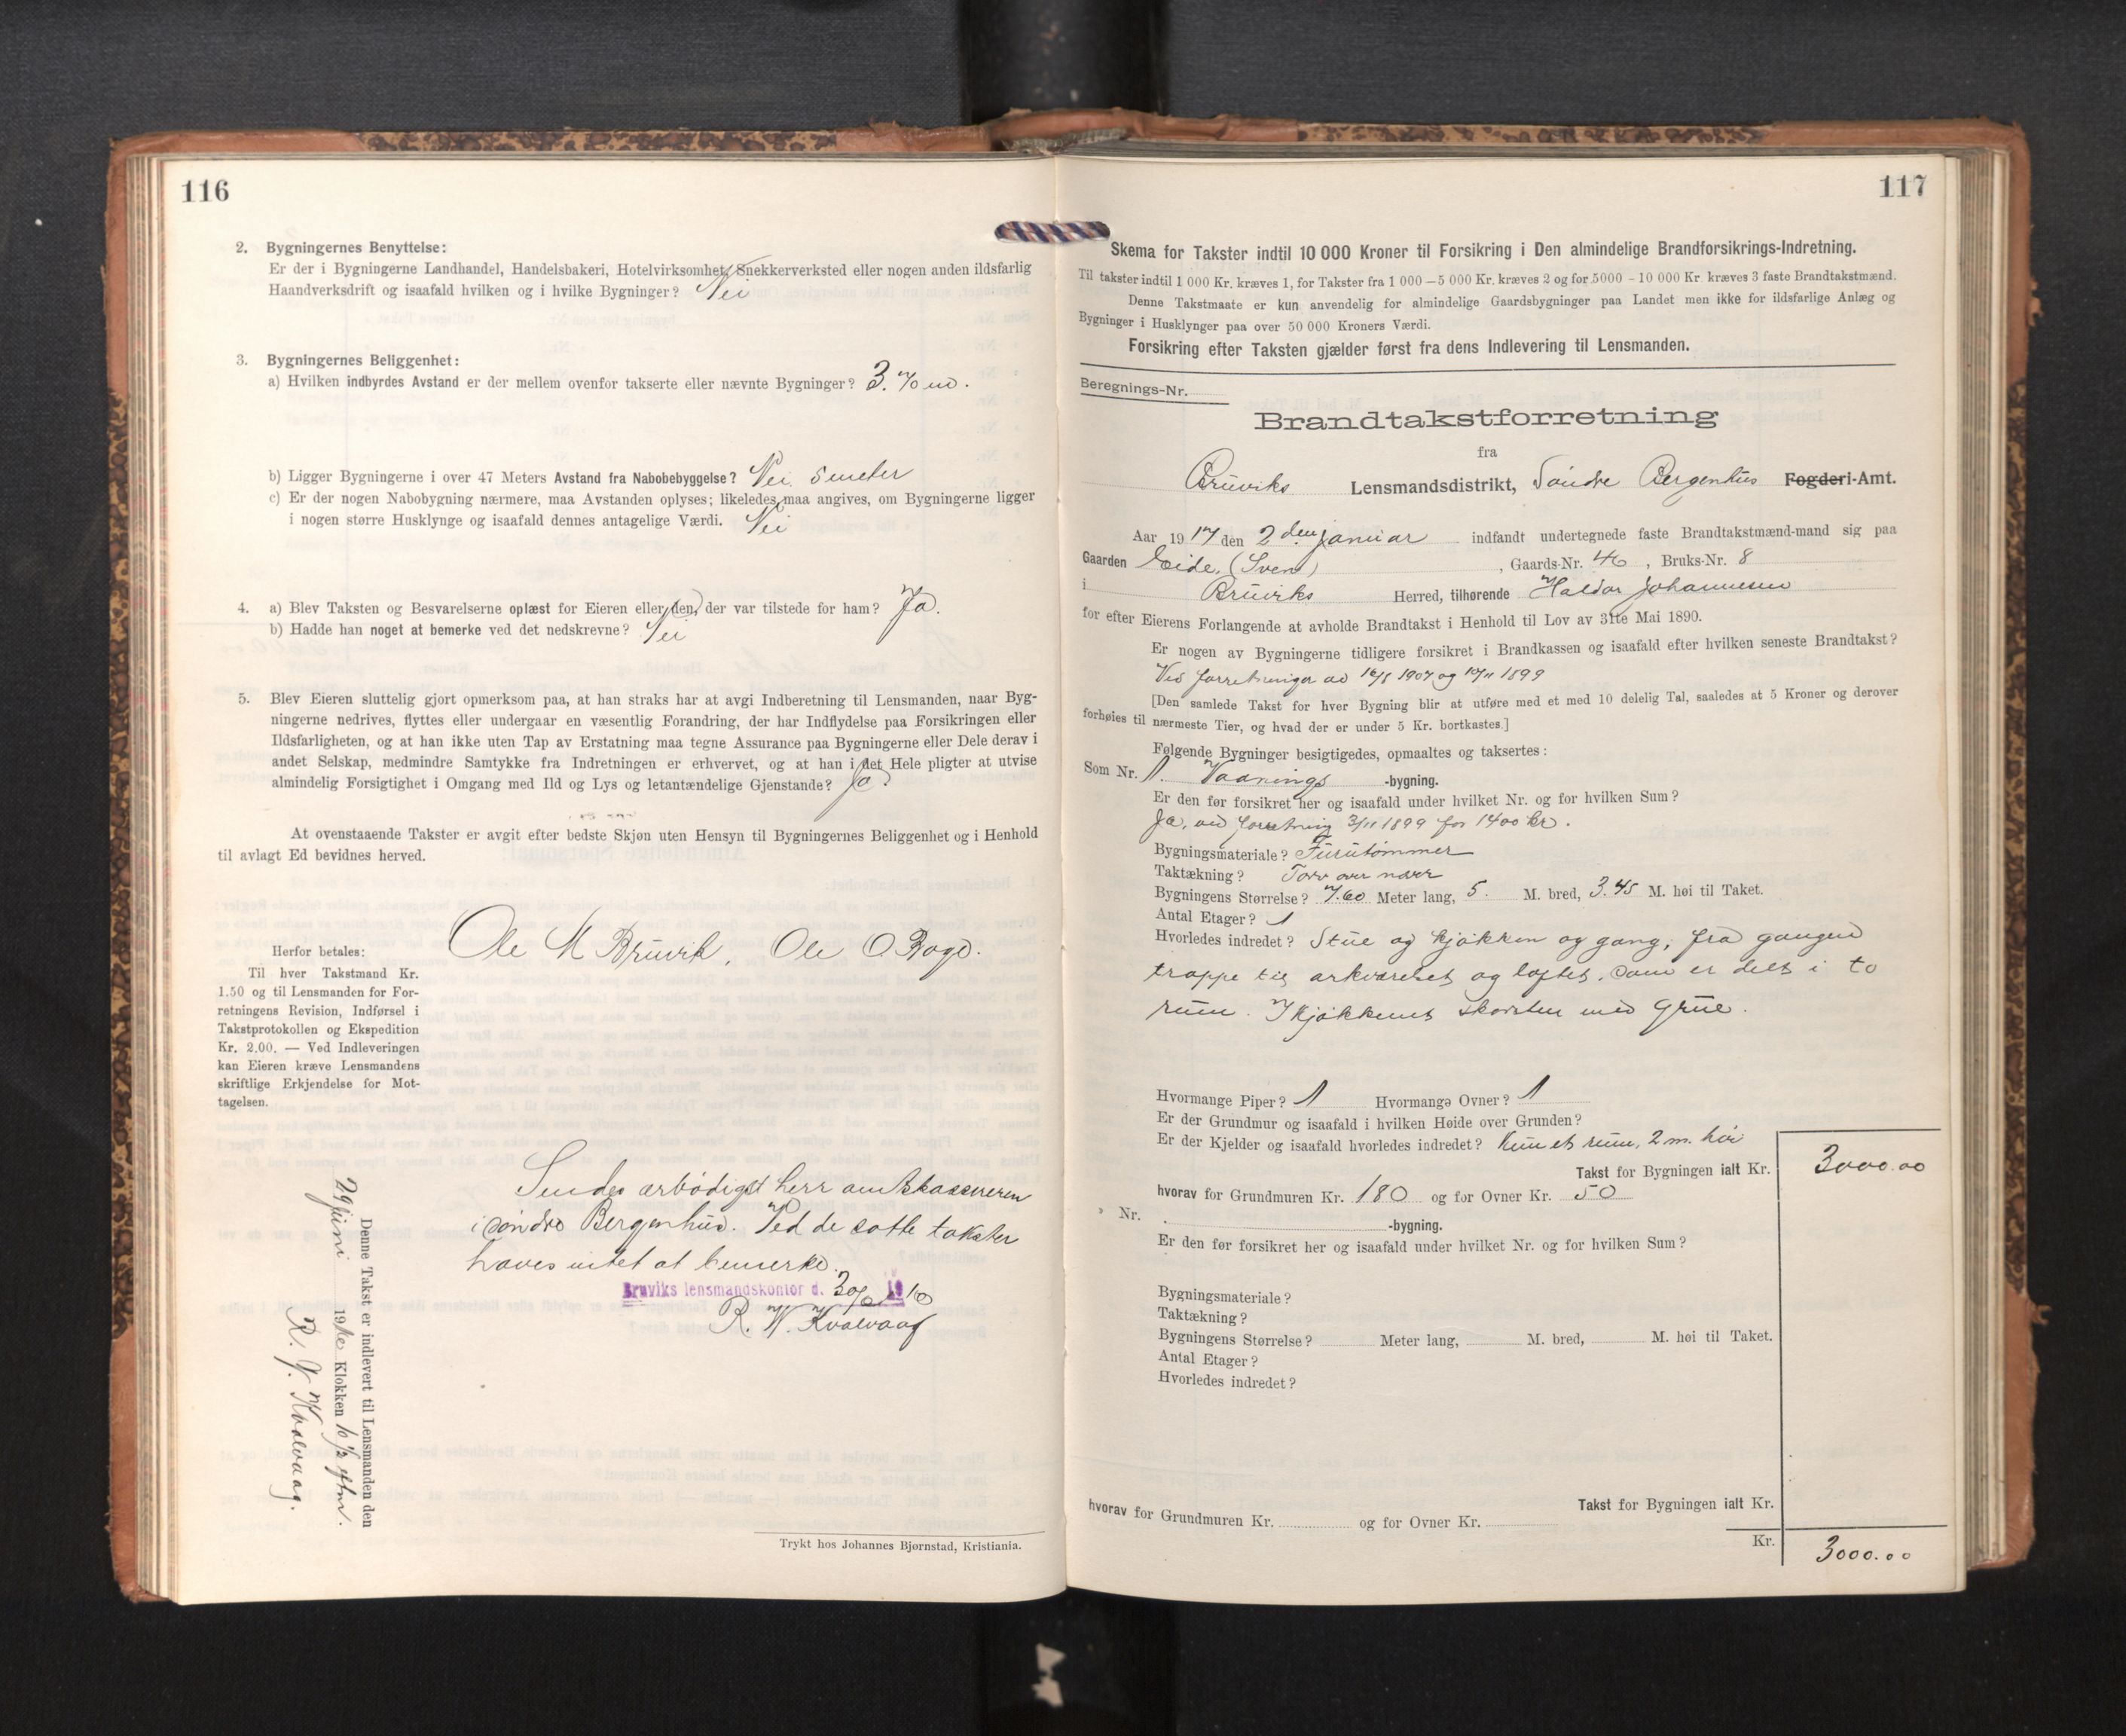 116
2. Bygningernes Benyttelse:
Er der i Bygningerne Landhandel, Handelsbakeri, Hotelvirksomhet, Snekkerverksted eller nogen anden ildsfarlig
Haandverksdrift og isaafald hvilken og i hvilke Bygninger? Nei
3. Bygningernes Beliggenhet:
a) Hvilken indbyrdes Avstand er der mellem ovenfor takserte eller nævnte Bygninger? 3.
b) Ligger Bygningerne i over 47 Meters Avstand fra Nabobebyggelse? Nei 5 meter
c) Er der nogen Nabobygning nærmere, maa Avstanden oplyses; likeledes maa angives, om Bygningerne ligger
i nogen større Husklynge og isaafald dennes antagelige Værdi. Nei
4. a) Blev Taksten og Besvarelserne oplæst for Eieren eller den, der var tilstede for ham? Ja.
b) Hadde han noget at bemerke ved det nedskrevne? Nei
5. Blev Eieren sluttelig gjort opmerksom paa, at han straks har at avgi Indberetning til Lensmanden, naar Byg-
ningerne nedrives, flyttes eller undergaar en væsentlig Forandring, der har Indflydelse paa Forsikringen eller
Ildsfarligheten, og at han ikke uten Tap av Erstatning maa tegne Assurance paa Bygningerne eller Dele derav i
andet Selskap, medmindre Samtykke fra Indretningen er erhvervet, og at han i det Hele pligter at utvise
almindelig Forsigtighet i Omgang med Ild og Lys og letantændelige Gjenstande? Ja
At ovenstaaende Takster er avgit efter bedste Skjøn uten Hensyn til Bygningernes Beliggenhet og i Henhold
til avlagt Ed bevidnes herved.
Ole M Bruvik, Ole O
Herfor betales:
Til hver Takstmand Kr.
1.50 og til Lensmanden for For-
retningens Revision, Indførsel i
Takstprotokollen og Ekspedition
Kr. 2.00. — Ved Indleveringen
kan Eieren kræve Lensmandens
skriftlige Erkjendelse for Mot-
tagelsen.
Sendes ærbødigst herr amtskassereren
i søndre Bergenhus. Ved de satte takster
haves intet at bemerke.
Bruviks lensmandskontor d. 30/6 1910
R. W. Kvalvaag
Denne Takst er indlevert til Lensmanden den
29 juni 1910 Klokken 10 1/2 eftm.
R. W. Kvalvaag.
Trykt hos Johannes Bjørnstad, Kristiania.
117
Skema for Takster indtil 10 000 Kroner til Forsikring i Den almindelige Brandforsikrings-Indretning.
Til takster indtil 1 000 Kr. kræves 1, for Takster fra 1 000 — 5 000 Kr. kræves 2 og for 5000 - 10 000 Kr kræves 3 faste Brandtakstmænd.
Denne Takstmaate er kun anvendelig for almindelige Gaardsbygninger paa Landet men ikke for ildsfarlige Anlæg og
Bygninger i Husklynger paa over 50 000 Kroners Værdi.
Forsikring efter Taksten gjælder først fra dens Indlevering til Lensmanden.
Beregnings-Nr.
Brandtakstforretning
fra
Bruviks Lensmandsdistrikt, Søndre Bergenhus Fogderi-Amt.
Aar 1917 den 2den januar indfandt undertegnede faste Brandtakstmænd-mand sig paa
Gaarden Eide, (Sven) , Gaards-Nr. 46 , Bruks-Nr. 8
i Bruviks Herred, tilhørende Haldor Johannesen
for efter Eierens Forlangende at avholde Brandtakst i Henhold til Lov av 31te Mai 1890.
Er nogen av Bygningerne tidligere forsikret i Brandkassen og isaafald efter hvilken seneste Brandtakst?
Ved forretninger av 16/8 1907 og 10/11 1899
[Den samlede Takst for hver Bygning blir at utføre med et med 10 delelig Tal, saaledes at 5 Kroner og derover
forhøies til nærmeste Tier, og hvad der er under 5 Kr. bortkastes.]
Følgende Bygninger besigtigedes, opmaaltes og taksertes:
Som Nr. 1. Vaanings -bygning.
Er den før forsikret her og isaafald under hvilket Nr. og for hvilken Sum?
Ja, ved forretning 3/11 1899 for 1400 kr.
Bygningsmateriale? Furutømmer
Taktækning? Torv over næver
Bygningens Størrelse? 7.60 Meter lang, 5. M. bred, 3.45 M. høi til Taket.
Antal Etager? 1
Hvorledes indredet? Stue og kjøkken og gang, fra gangen
trappe til arkværelset og loftet, som er delt i to
rum. I kjøkkenet skorsten med Grue.
Hvormange Piper? 1 Hvormange Ovner? 1
Er der Grundmur og isaafald i hvilken Høide over Grunden?
Er der Kjelder og isaafald hvorledes indredet? Kun et rum, 2 m. høi
Takst for Bygningen ialt Kr. 3000.00
hvorav for Grundmuren Kr. 180 og for Ovner Kr. 50
» Nr. -bygning.
Er den før forsikret her og isaafald under hvilket Nr. og for hvilken Sum?
Bygningsmateriale?
Taktækning?
Bygningens Størrelse? Meter lang, M. bred, M. høi til Taket.
Antal Etager?
Hvorledes indredet?
Takst for Bygningen ialt Kr.
hvorav for Grundmuren Kr. og for Ovner Kr.
Kr. 3000.00